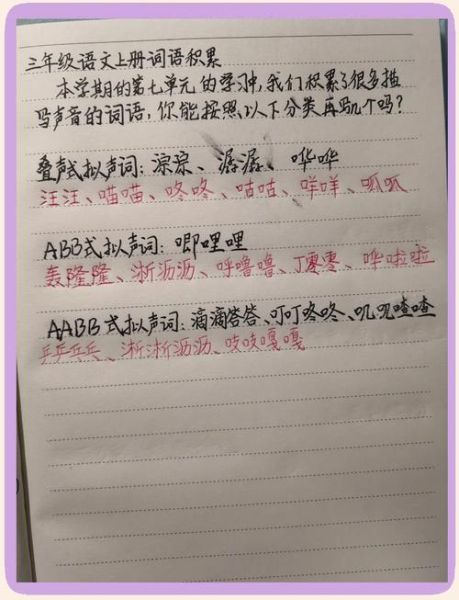 三年级语文上册词语积累
本学期的第七单元的学习中,我们积累了很多描
写声音的词语,你能按照以下分类再写几个吗?
叠声式拟声词:淙淙、潺潺、哗哗
汪汪、喵喵、咚咚、咕咕、咩咩、呱呱
ABB式拟声词:唧哩哩
轰隆隆、淅沥沥、呼噜噜、丁零零、哗啦啦
AABB式拟声词:滴滴答答、叮叮咚咚、叽叽喳喳
乒乒乓乓、淅淅沥沥、吱吱嘎嘎